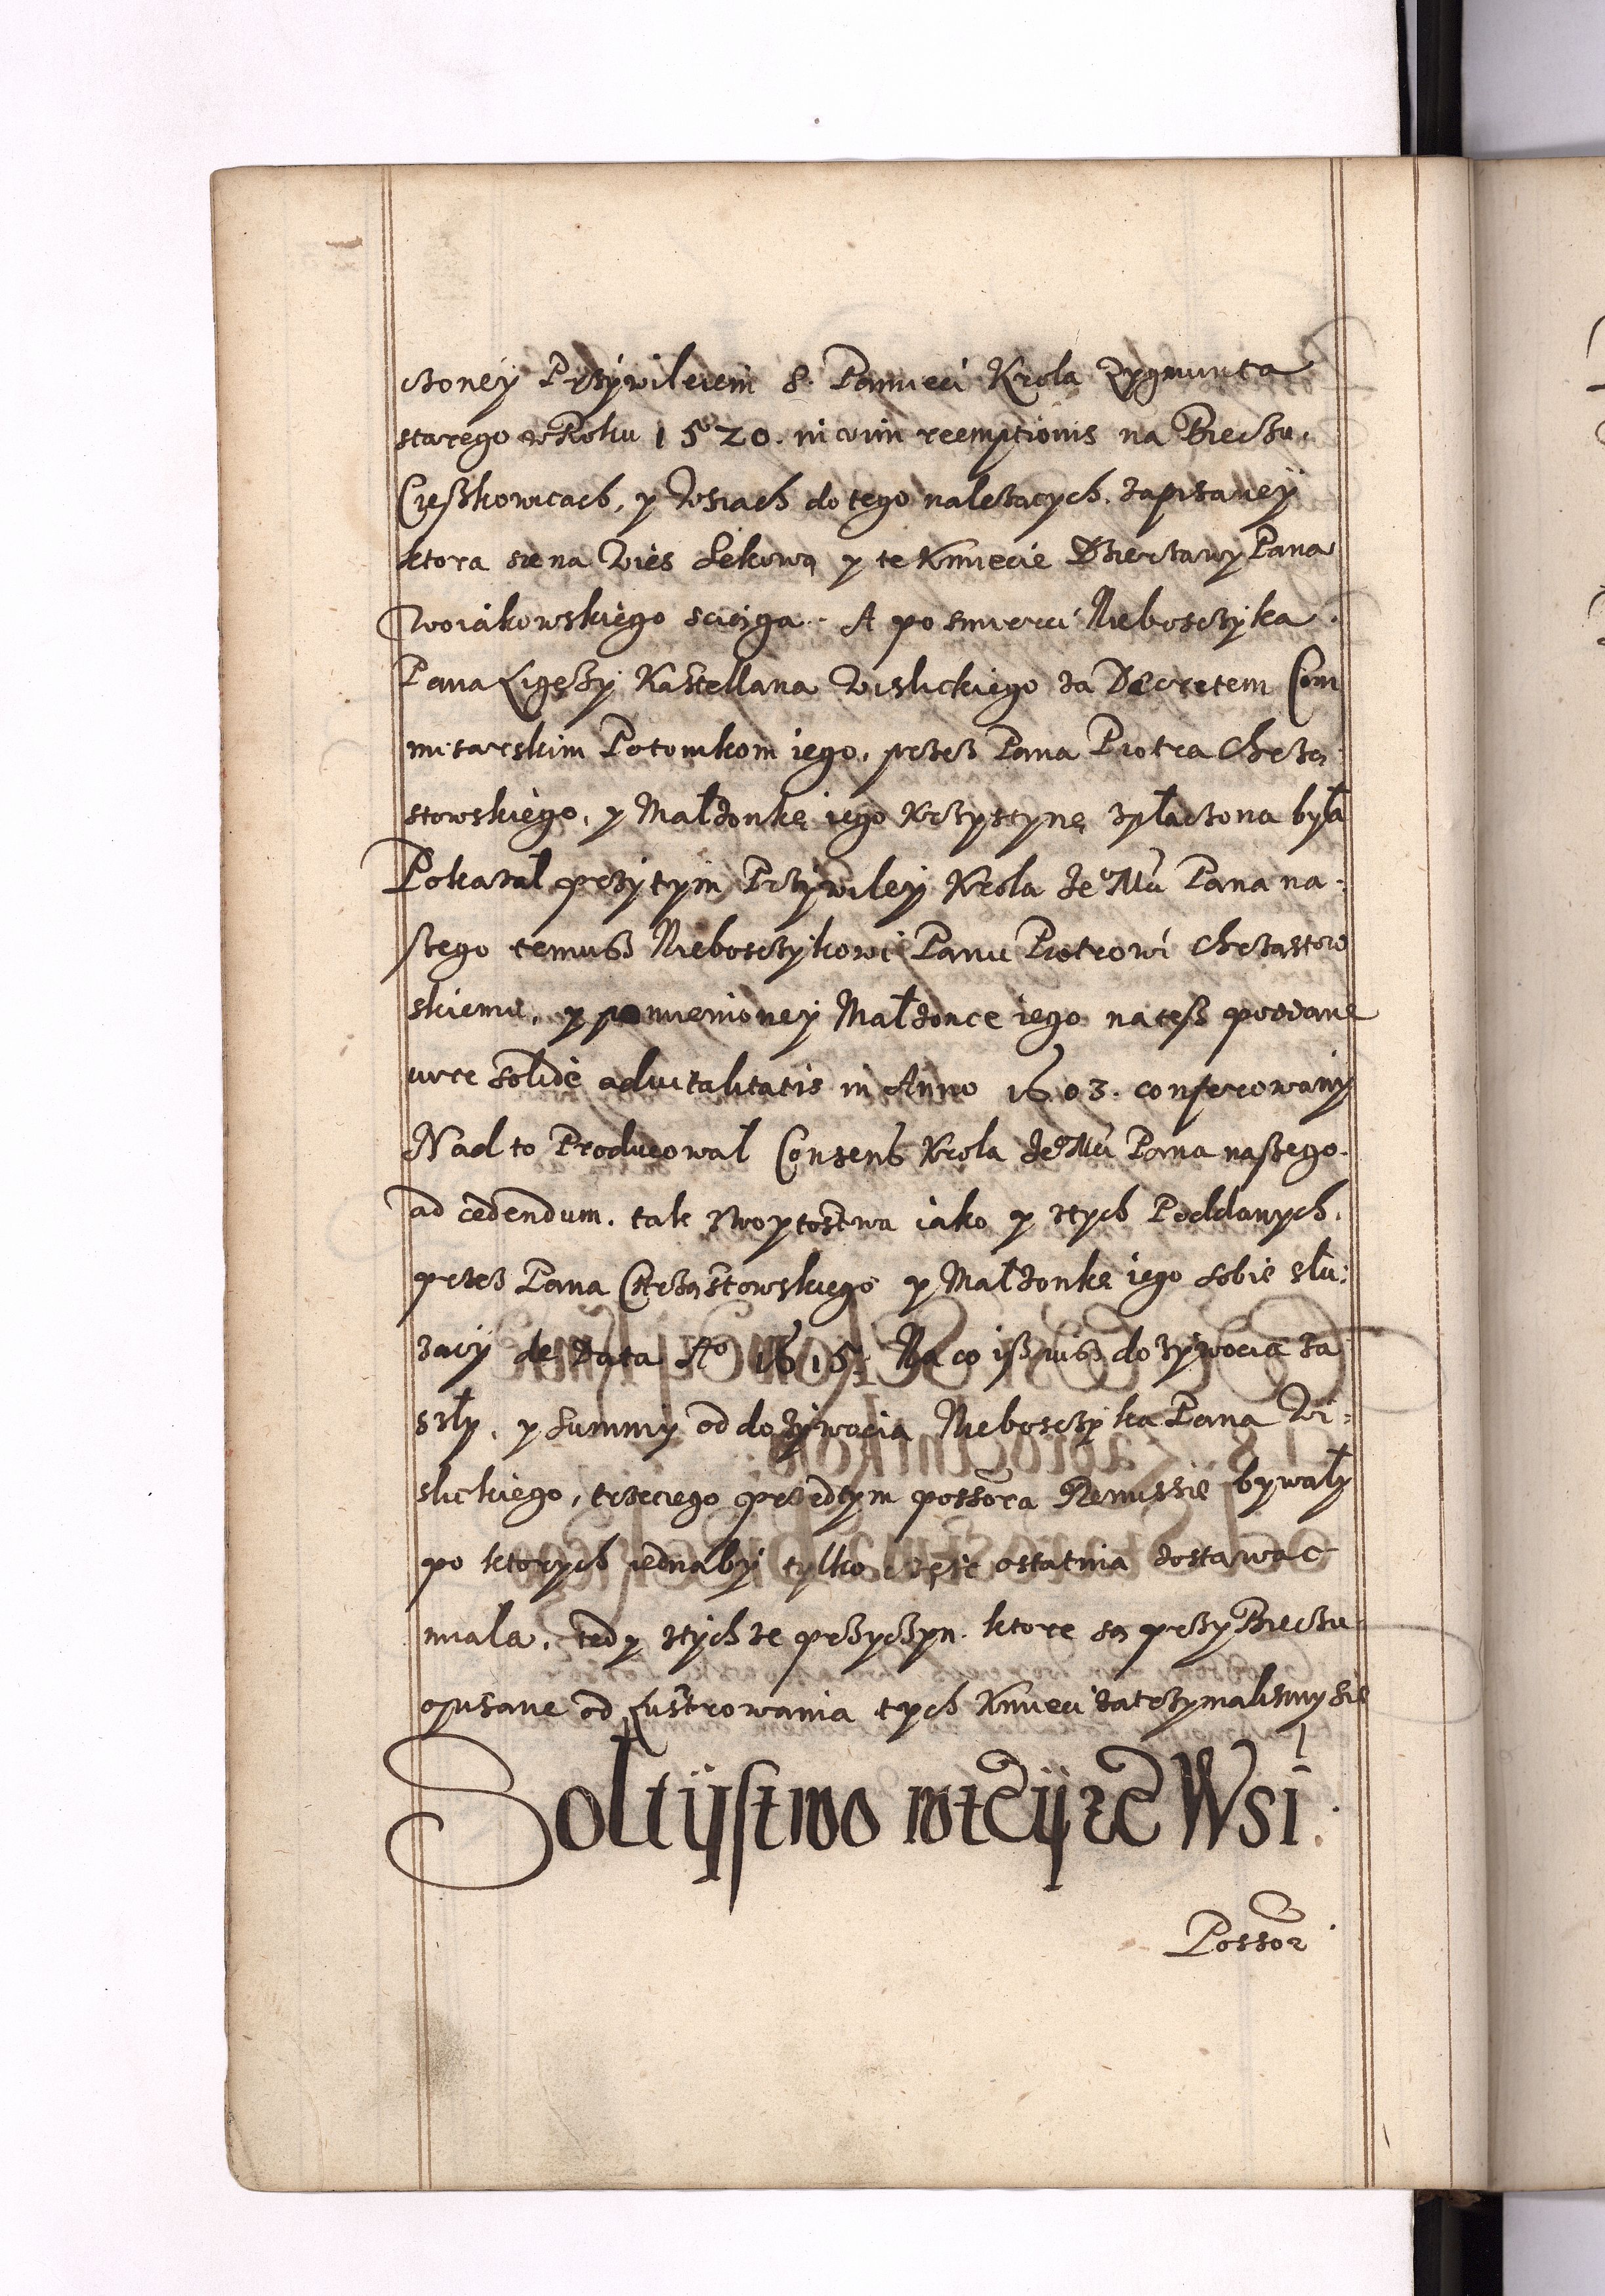 czoney Przÿwileiem S. Pamieci Krola Zygmunta
starego w Roku 1520. in vim reemptionis na Bieczu,
Cieszkowicach, y Wsiach do tego nalezacych. zapisaneÿ
ktora sie na Wies Sekową y te Kmiecie Dzierzawy Pana
Twoiakowskiego sciąga. A po smierci Nieboszczyka.
Pana Ligęzÿ Kasztellana Wislickiego za Decretem Com
misarskim Potomkom iego, przez Pana Piotra Chrzą,
stowskiego, y Małzonkę iego Krzystynę zpłaczona była
Pokazał przÿ tym Przÿwileÿ Krola Je° Mci Pana na:
szego temusz Nieboszczykowi Panu Piotrowi Chrząstow
skiemu, y pomienioneÿ Małzonce iego na tesz poddane
iure solido advitalitatis in Anno 1603. conferowanÿ
Nad to Producował Consens Krola Je° Mci Pana naszego.
ad cedendum. tak Woytostwa iako y ztych Poddanych.
przez Pana Chrząstowskiego y Małzonkę iego sobie słu:
zacÿ de Data A° 1615. Na co isz iusz dozÿwocia za
szły, y summÿ od dozÿwocia Nieboszczyka Pana Wi:
slickiego, trzeciego przedtym possora Remissie bywałÿ
po ktorych iednabÿ tylko częsc ostatnia zostawac
miala. tedy ztychze przyczyn. ktore są przy Bieczu
opisane od Lustrowania tych Kmieci zatrzymalismy sie
Soltÿstwo wteÿze Wsi.
Possor